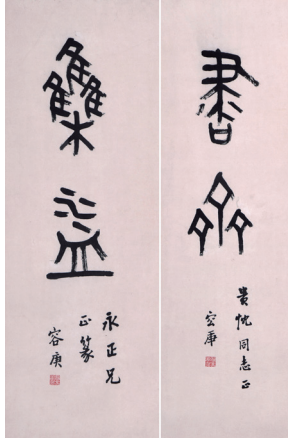 書
貴忱同志正
容庚
集益
永正兄
正篆
容庚